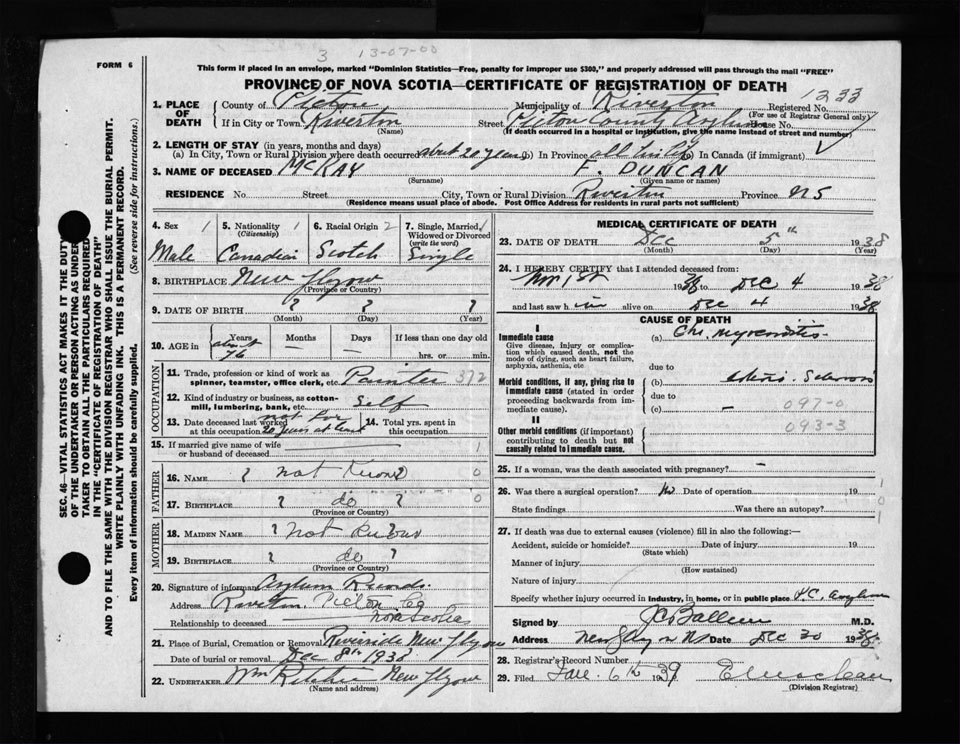 3 13-07-00
FORM 6
This form if placed in an envelope, marked "Dominion Statistics—Free, penalty for improper use $300," and properly addressed will pass through the mail "FREE"
PROVINCE OF NOVA SCOTIA—CERTIFICATE OF REGISTRATION OF DEATH
1233
1. PLACE OF DEATH County of Pictou Municipality of Riverton Registered No.
(For use of Registrar General only)
If in City or Town Riverton Street Pictou County Asylum House No.
(Name) (If death occurred in a hospital or institution, give the name instead of street and number)
2. LENGTH OF STAY (in years, months and days)
(a) In City, Town or Rural Division where death occurred about 20 years (b) In Province all his life (c) In Canada (if immigrant)
3. NAME OF DECEASED McKAY F. DUNCAN
(Surname) (Given name or names)
RESIDENCE No. Street City, Town or Rural Division Riverton Province NS
(Residence means usual place of abode. Post Office Address for residents in rural parts not sufficient)
4. Sex 1 5. Nationality 1 6. Racial Origin 2 7. Single, Married, Widowed or Divorced 1
(Citizenship) (write the word)
Male Canadian Scotch Single
8. BIRTHPLACE New Glasgow
(Province or Country)
9. DATE OF BIRTH ? ? ?
(Month) (Day) (Year)
10. AGE in Years Months Days If less than one day old
about 76 — — hrs. or min.
OCCUPATION
11. Trade, profession or kind of work as spinner, teamster, office clerk, etc. Painter 372
12. Kind of industry or business, as cotton-mill, lumbering, bank, etc. Self
13. Date deceased last worked at this occupation not for 20 years at least 14. Total yrs. spent in this occupation
15. If married give name of wife or husband of deceased 1
FATHER
16. NAME ? not known ? 0
17. BIRTHPLACE ? do ? 0
(Province or Country)
MOTHER
18. MAIDEN NAME ? not known ?
19. BIRTHPLACE ? do ?
(Province or Country)
20. Signature of informant Asylum Records
Address Riverton, Pictou Co
Nova Scotia
Relationship to deceased
21. Place of Burial, Cremation or Removal Riverside New Glasgow
Date of burial or removal Dec 8th 1938
22. UNDERTAKER New Glasgow
(Name and address)
MEDICAL CERTIFICATE OF DEATH
23. DATE OF DEATH Dec 5th 1938
(Month) (Day)
24. I HEREBY CERTIFY that I attended deceased from:
Nov 1st 1938 to Dec 4 1938
and last saw him alive on Dec 4 1938
CAUSE OF DEATH
I
Immediate cause (a) Chr. myocarditis
Give disease, injury or complication which caused death, not the mode of dying, such as heart failure, asphyxia, asthenia, etc
due to
Morbid conditions, if any, giving rise to immediate cause (stated in order proceeding backwards from immediate cause). (b) Arterio-Sclerosis
due to
(c) —
097-0
093-3
II
Other morbid conditions (if important) contributing to death but not causally related to immediate cause.
25. If a woman, was the death associated with pregnancy? —
26. Was there a surgical operation? No Date of operation 19
State findings Was there an autopsy?
1
0
1
27. If death was due to external causes (violence) fill in also the following:—
Accident, suicide or homicide? Date of injury 19
(State which)
Manner of injury
(How sustained)
Nature of injury
Specify whether injury occurred in industry, in home, or in public place
Signed by M.D.
Address New Glasgow NS Date Dec 30 1938
28. Registrar's Record Number
29. Filed Jan. 6th 1939
(Division Registrar)
SEC. 46—VITAL STATISTICS ACT MAKES IT THE DUTY
OF THE UNDERTAKER OR PERSON ACTING AS UNDERTAKER
TO OBTAIN ALL THE PARTICULARS REQUIRED
IN THE "CERTIFICATE OF REGISTRATION OF DEATH"
AND TO FILE THE SAME WITH THE DIVISION REGISTRAR WHO SHALL ISSUE THE BURIAL PERMIT.
WRITE PLAINLY WITH UNFADING INK. THIS IS A PERMANENT RECORD.
Every item of information should be carefully supplied. (See reverse side for instructions.)